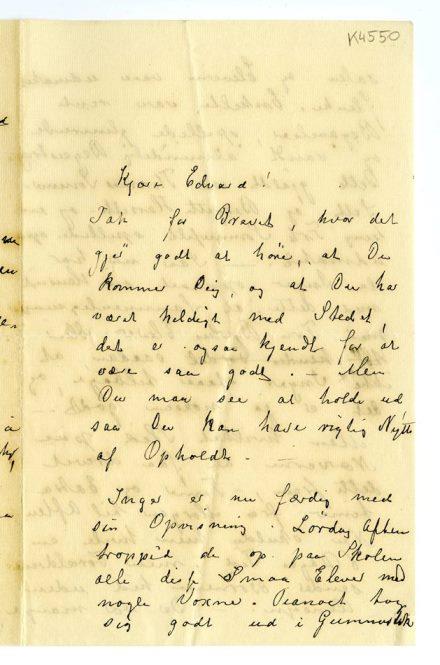 K4550
Kjære Edvard!
Tak for Brevet, hvor det
gjør godt at höre, at Du
kommer Dig, og at Du har
været heldigt med Stedet,
det er ogsaa kjendt for at
være saa godt. — Men
Du maa see at holde ud
saa Du kan have rigtig Nytte
af Opholdt. —
Inger er nu færdig med
sin Opvisning. Lördag Aften
tropped de op paa Skolen
alle disse Smaa Elever med
nogle Voxne. Pianoet tog
sig godt ud i